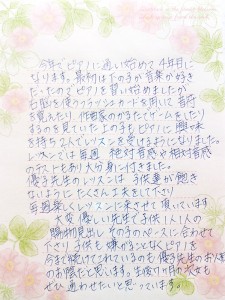 今年でピアノに通い始めて4年目に
なります。最初は下の子が音楽が好き
だったのでピアノを習い始めましたが
お教室を使うフラッシュカードを用いて音符
を覚えたり、作曲家のかるたでゲームをしたり
するのを見ていた上の子もピアノに興味
を持ち2人でレッスンを受けるようになりました。
レッスンでは毎週 絶対音感や相対音感
のテストもあり大分身に付きました。
優子先生のレッスンは 子供達が飽き
ないようにたくさん工夫をして下さり
毎週楽しくレッスンに来させて頂いています
大変 優しい先生で子供1人1人の
時期見出し その子のペースに合わせて
下さり 子供も嫌がることなくピアノを
今まで続けてこれているのも 優子先生のお人柄
のお陰だと思います。生後 ヶ月の次女も
ぜひ通わせたいと思っています。